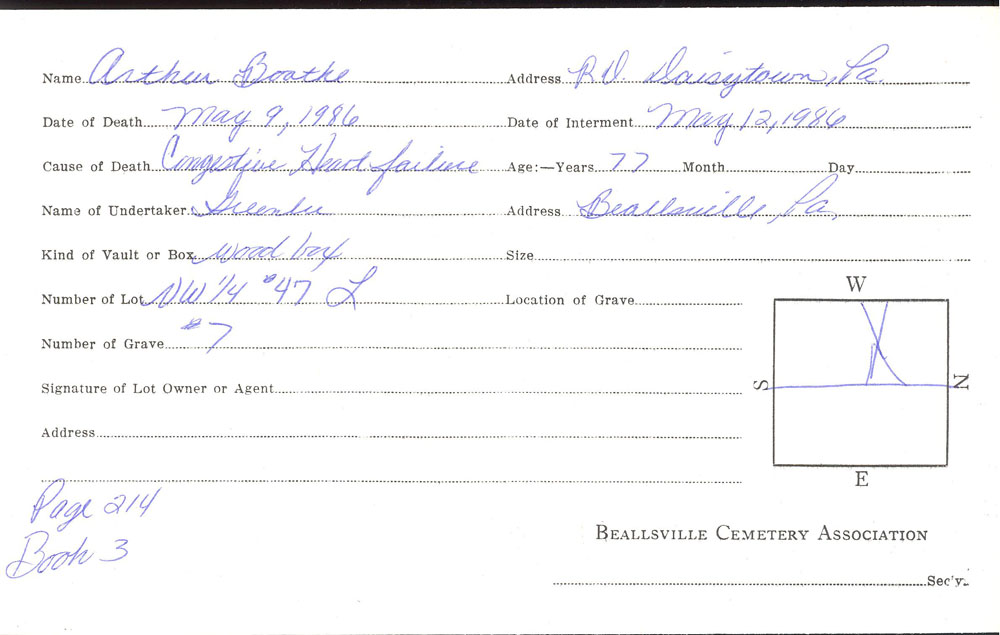 Name Arthur Boathe Address RD Daisytown, Pa.
Date of Death May 9, 1986 Date of Interment May 12, 1986
Cause of Death Congestive Heart failure Age:—Years 77 Month Day
Name of Undertaker Greenlee Address Beallsville, Pa.
Kind of Vault or Box Wood box Size
Number of Lot NW 1/4 #47 L Location of Grave
Number of Grave #7
Signature of Lot Owner or Agent
Address
W
S
N
E
Page 214
Book 3
BEALLSVILLE CEMETERY ASSOCIATION
Sec'y.